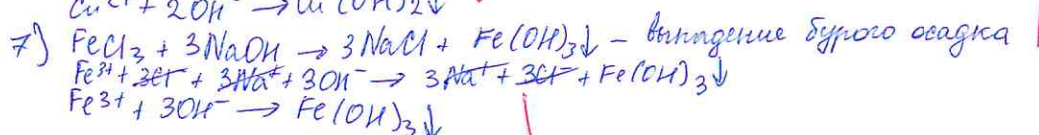 Cu²⁺ + 2OH⁻ → Cu(OH)₂↓
7) FeCl₃ + 3NaOH → 3NaCl + Fe(OH)₃↓ – выпадение бурого осадка
Fe³⁺ + 3Cl⁻ + 3Na⁺ + 3OH⁻ → 3Na⁺ + 3Cl⁻ + Fe(OH)₃↓
Fe³⁺ + 3OH⁻ → Fe(OH)₃↓